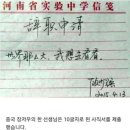 河南省实验中学信笺
辞职申请
世界那么大，我想去看看。
2015.4.13
중국 장저우의 한 선생님은 10글자로 된 사직서를 제출
했습니다.